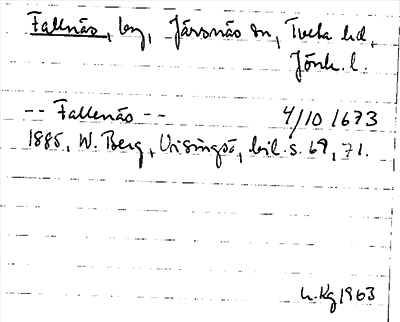 Fallnäs, by, Järsnäs sn, Tveta hd,
Jönk. l.
-- Fallenäs -- 4/10 1673
1885, W. Berg, Visingsö, bil. s. 69, 71.
1963